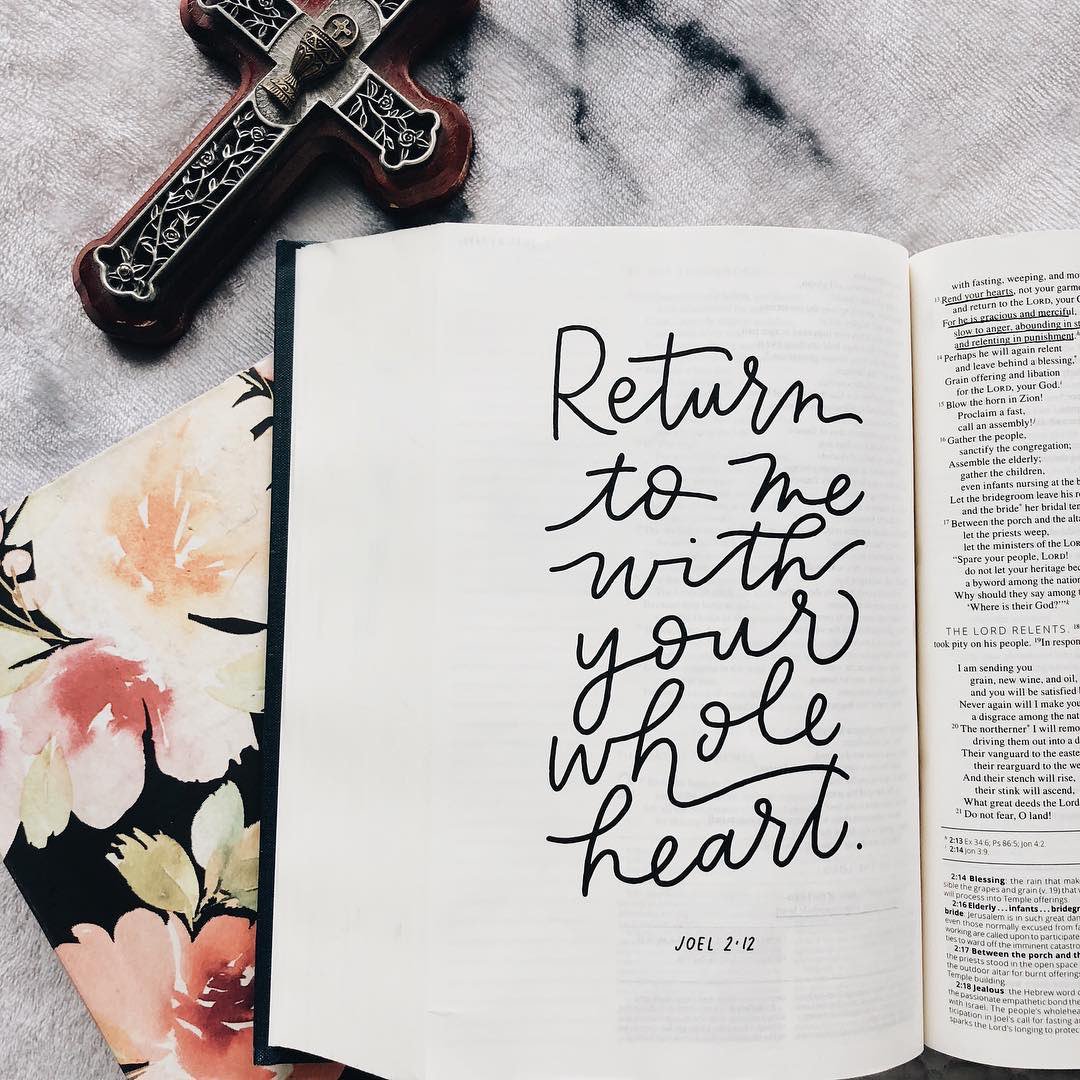 Return
to me
with
your
whole
heart.
JOEL 2:12
with fasting, weeping, and
13 Rend your hearts, not your
and return to the LORD, your
For he is gracious and merciful,
slow to anger, abounding in
and relenting in punishment.
14 Perhaps he will again relent
and leave behind a blessing,*
Grain offering and libation
for the LORD, your God.
15 Blow the horn in Zion!
Proclaim a fast,
call an assembly!
16 Gather the people,
sanctify the congregation;
Assemble the elderly;
gather the children,
even infants nursing at the
Let the bridegroom leave his
and the bride* her bridal
17 Between the porch and the
let the priests weep,
let the ministers of the
“Spare your people, LORD!
do not let your heritage
a byword among the
Why should they say among
‘Where is their God?’”k
THE LORD RELENTS. 18
took pity on his people. 19In
I am sending you
grain, new wine, and oil,
and you will be satisfied
Never again will I make
a disgrace among the
20 The northerner* I will
driving them out into a
Their vanguard to the
their rearguard to the
And their stench will rise,
their stink will ascend,
What great deeds the
21 Do not fear, O land!
2:13 Ex 34:6; Ps 86:5; Jon 4:2.
2:14 Jon 3:9.
2:14 Blessing: the rain that
the grapes and grain (v. 19) that
will process into Temple offerings.
2:16 Elderly . . . infants . . .
bride: Jerusalem is in such great
even those normally excused from
working are called upon to participate
to ward off the imminent
2:17 Between the porch and the
the priests stood in the open space
the outdoor altar for burnt
Temple building.
2:18 Jealous: the Hebrew word
the passionate empathetic bond the
with Israel. The people's
in Joel's call for fasting
sparks the Lord's longing to